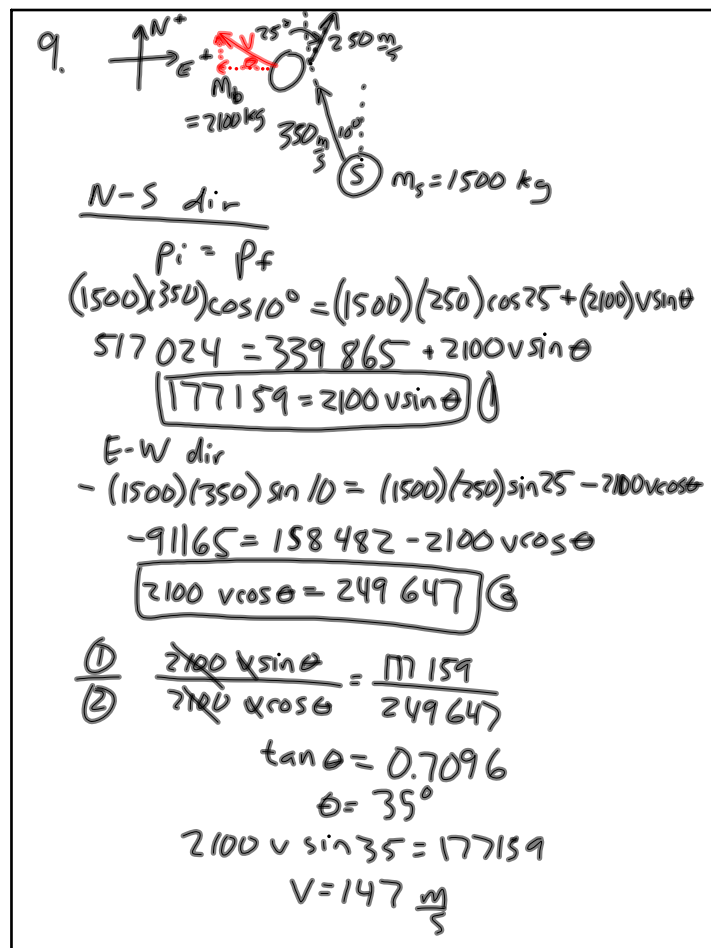 9.
N+
E+
25°
250 m/s
V
M_b
= 2100 kg
350 m/s
10°
S
m_s = 1500 kg
N-S dir
Pi = Pf
(1500)(350)cos10° = (1500)(250)cos25 + (2100)vsinθ
517 024 = 339 865 + 2100 vsinθ
177159 = 2100 vsinθ ①
E-W dir
- (1500)(350) sin 10 = (1500)(250) sin25 - 2100vcosθ
-91165 = 158 482 - 2100 vcosθ
2100 vcosθ = 249 647 ②
① 2100 vsinθ = 177 159
② 2100 vcosθ 249 647
tanθ = 0.7096
θ = 35°
2100 v sin 35 = 177159
V = 147 m/s